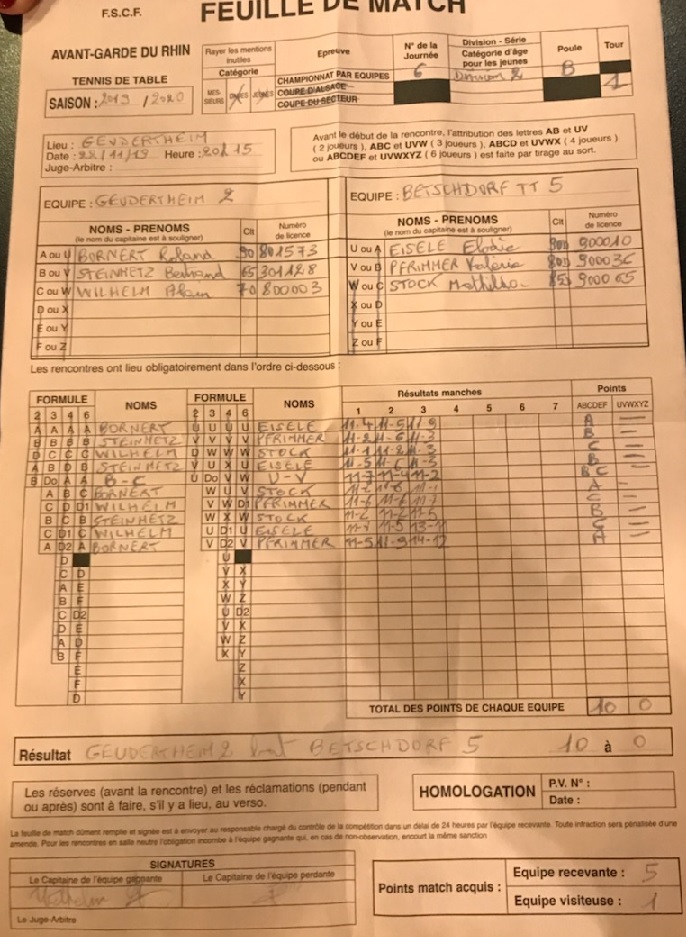 F.S.C.F. FEUILLE DE MATCH
AVANT-GARDE DU RHIN
TENNIS DE TABLE
SAISON : 2019 / 2020
Rayer les mentions inutiles
Catégorie
MES-SIEURS DAMES JEUNES
Epreuve
CHAMPIONNAT PAR EQUIPES
COUPE D'ALSACE
COUPE DU SECTEUR
N° de la Journée
6
Division - Série
Catégorie d'âge pour les jeunes
Division 2
Poule
B
Tour
1
Lieu : GEUDERTHEIM
Date : 22/11/19 Heure : 20h15
Juge-Arbitre :
Avant le début de la rencontre, l'attribution des lettres AB et UV
( 2 joueurs ), ABC et UVW ( 3 joueurs ), ABCD et UVWX ( 4 joueurs )
ou ABCDEF et UVWXYZ ( 6 joueurs ) est faite par tirage au sort.
EQUIPE : GEUDERTHEIM 2
NOMS - PRENOMS
(le nom du capitaine est à souligner)
Clt
Numéro de licence
A ou U BORNERT Roland 90 801573
B ou V STEINHETZ Bertrand 65 301428
C ou W WILHELM Alain 70 800003
D ou X
E ou Y
F ou Z
EQUIPE : BETSCHDORF TT 5
NOMS - PRENOMS
(le nom du capitaine est à souligner)
Clt
Numéro de licence
U ou A EISELE Elodie 900010
V ou B PFRIMMER Valérie 900036
W ou C STOCK 900065
X ou D
Y ou E
Z ou F
Les rencontres ont lieu obligatoirement dans l'ordre ci-dessous :
FORMULE NOMS FORMULE NOMS Résultats manches Points
2 3 4 6 2 3 4 6 1 2 3 4 5 6 7 ABCDEF UVWXYZ
A A A A BORNERT U U U U EISELE 11-4 11-5 11-9 A —
B B B B STEINHETZ V V V V PFRIMMER 11-2 11-6 11-3 B —
WILHELM STOCK C —
STEINHETZ EISELE 11-5 11-6 11-3 B —
B Do A A B-C U Do V W U-V 11-7 11-4 11-2 BC —
A B C BORNERT W U V STOCK A —
C D D1 WILHELM V W D1 PFRIMMER 11-6 C —
B C B STEINHETZ W X W STOCK B —
C D1 C WILHELM U D1 U EISELE C —
A D2 A BORNERT V D2 V PFRIMMER 11-5 11-9 14-12 A —
D U
C D V X
A E X Y
B F W Z
C D2 U D2
D E V X
A D W Z
B F X Y
E Z
F X
D Y
TOTAL DES POINTS DE CHAQUE EQUIPE 10 0
Résultat GEUDERTHEIM 2 bat BETSCHDORF 5 10 à 0
Les réserves (avant la rencontre) et les réclamations (pendant
ou après) sont à faire, s'il y a lieu, au verso.
HOMOLOGATION
P.V. N° :
Date :
La feuille de match dûment remplie et signée est à envoyer au responsable chargé du contrôle de la compétition dans un délai de 24 heures par l'équipe recevante. Toute infraction sera pénalisée d'une
amende. Pour les rencontres en salle neutre l'obligation incombe à l'équipe gagnante qui, en cas de non-observation, encourt la même sanction
SIGNATURES
Le Capitaine de l'équipe gagnante Le Capitaine de l'équipe perdante
Wilhelm
Le Juge-Arbitre
Points match acquis :
Equipe recevante : 5
Equipe visiteuse : 1